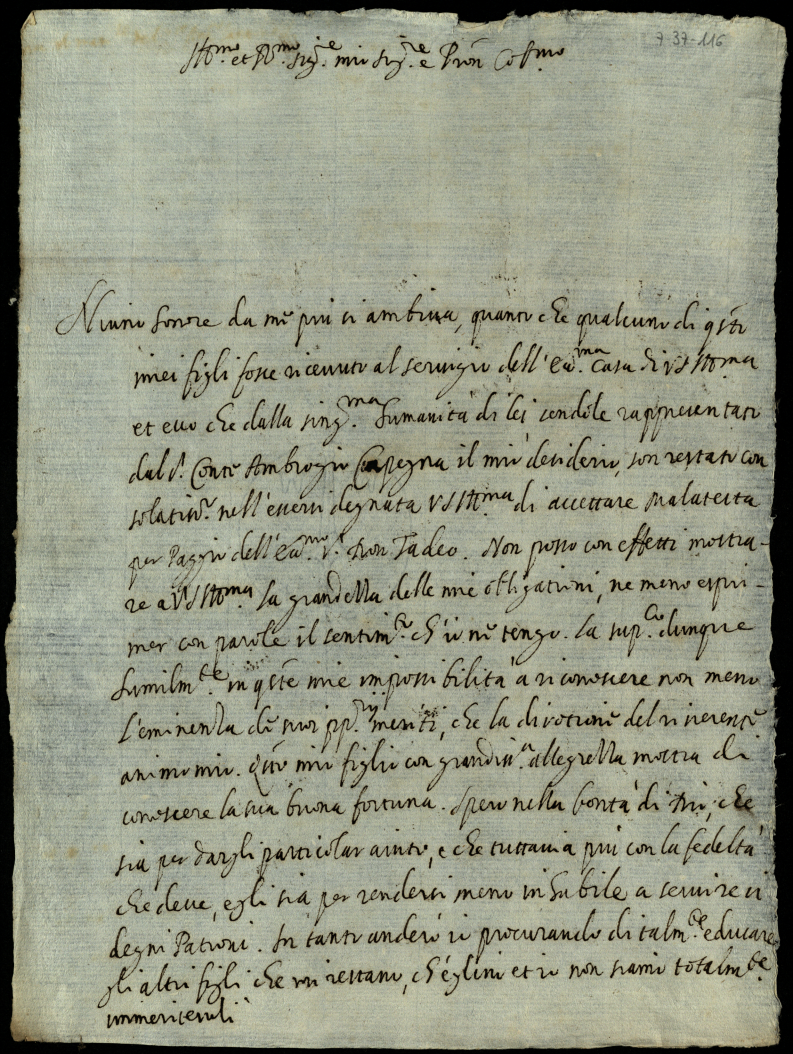 7 37-116
Ill.mo et R.mo Sig.re mio Sig.re e Pron Col.mo
Niuno honore da me piu si ambiua, quanto che qualcuno di q.sti
miei figli fosse riceuuto al seruigio dell' Ecc.ma Casa di VS Ill.ma
et ecco che dalla sing.ma humanità di lei sendole rappresentato
dal S. Conte Ambrogio Carpegna il mio desiderio, son restato con
solatiss.o nell'essersi degnata VS Ill.ma di accettare Malatesta
per Paggio dell'Ecc.mo S. Don Tadeo. Non posso con effetti mostra-
re a VS Ill.ma la grandezza delle mie obligationi, ne meno espri-
mer con parole il sentim.to ch'io ne tengo. La sup.co dunque
humilm.te in q.ste mie impossibilità a riconoscere non meno
l'eminenza de suoi pp.rij meriti, che la diuotione del riuerente
animo mio. Q.sto mio figlio con grandiss.a allegrezza mostra di
conoscere la sua buona fortuna. Spero nella bontà di Dio, che
sia per dargli particolar aiuto, e che tuttauia più con la fedeltà
che deue, egli sia per rendersi meno inhabile a seruire si
degni Patroni. In tanto anderò io procurando di talm.te educare
gli altri figli che mi restano, ch'eglino et io non siamo totalm.te
immeriteuoli